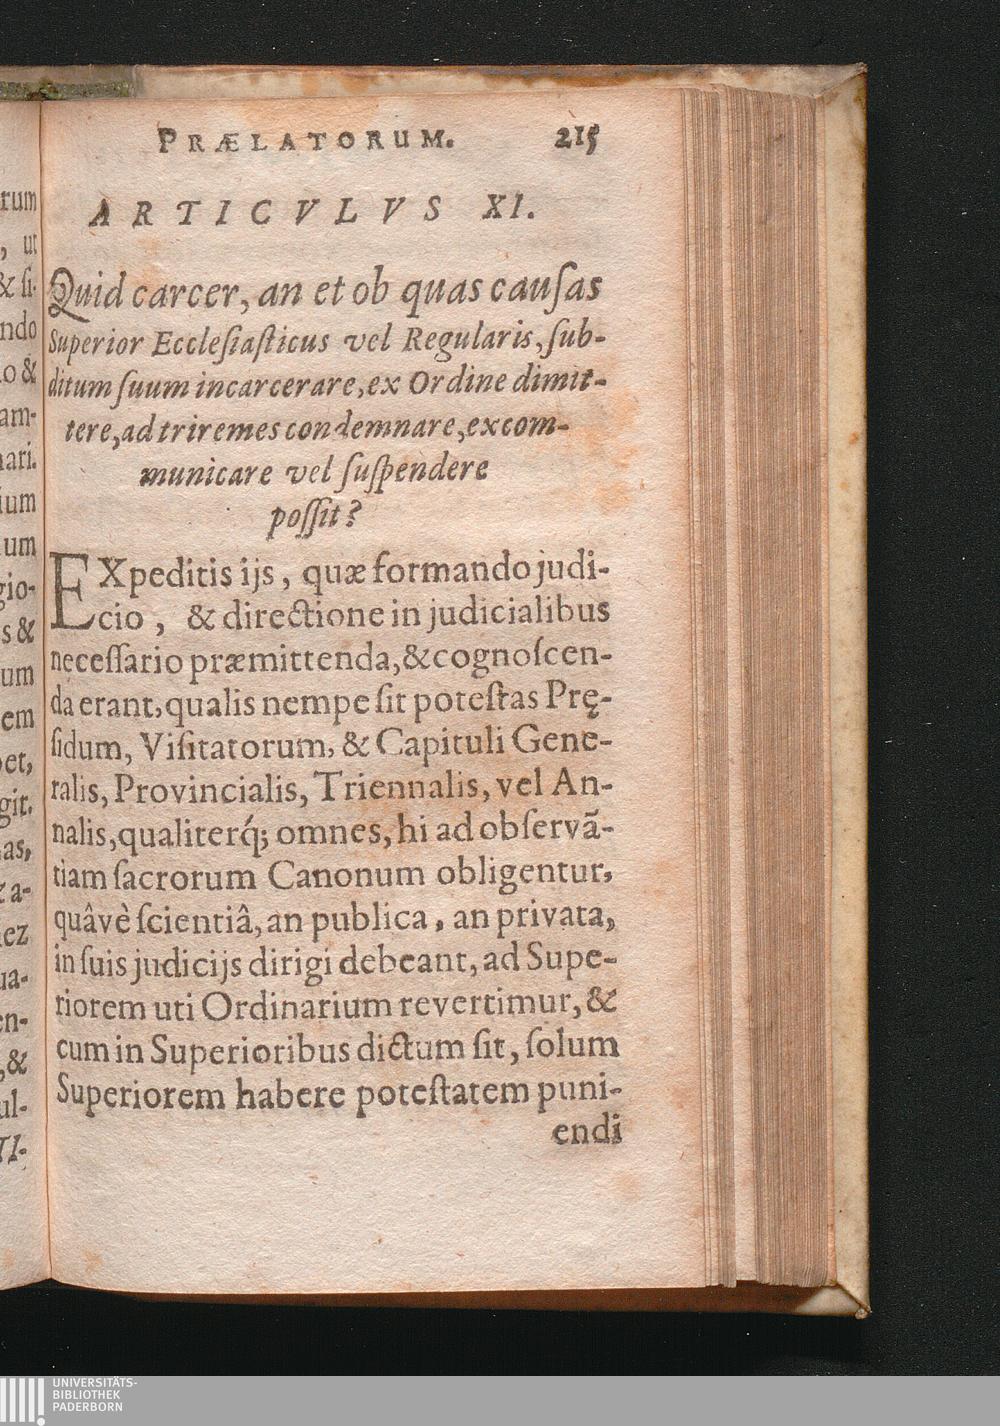 PRÆLATORUM. 215
ARTICVLVS XI.
Quid carcer, an et ob quas cauſas
Superior Eccleſiaſticus vel Regularis, ſub-
ditum ſuum incarcerare, ex Ordine dimit-
tere, ad triremes condemnare, excom-
municare vel ſuſpendere
poſſit?
EXpeditis ijs, quæ formando judi-
cio, & directione in judicialibus
neceſſario præmittenda, & cognoſcen-
da erant, qualis nempe ſit poteſtas Prę-
ſidum, Viſitatorum, & Capituli Gene-
ralis, Provincialis, Triennalis, vel An-
nalis, qualiterq́; omnes, hi ad obſervã-
tiam ſacrorum Canonum obligentur,
quâvè ſcientiâ, an publica, an privata,
in ſuis judicijs dirigi debeant, ad Supe-
riorem uti Ordinarium revertimur, &
cum in Superioribus dictum ſit, ſolum
Superiorem habere poteſtatem puni-
endi
rum
, ut
& ſi-
ndo
o &
am-
ari.
ium
um
gio-
s &
um
em
et,
git.
as,
a-
ez
ua-
en-
, &
ul-
TI-
UNIVERSITÄTS-
BIBLIOTHEK
PADERBORN